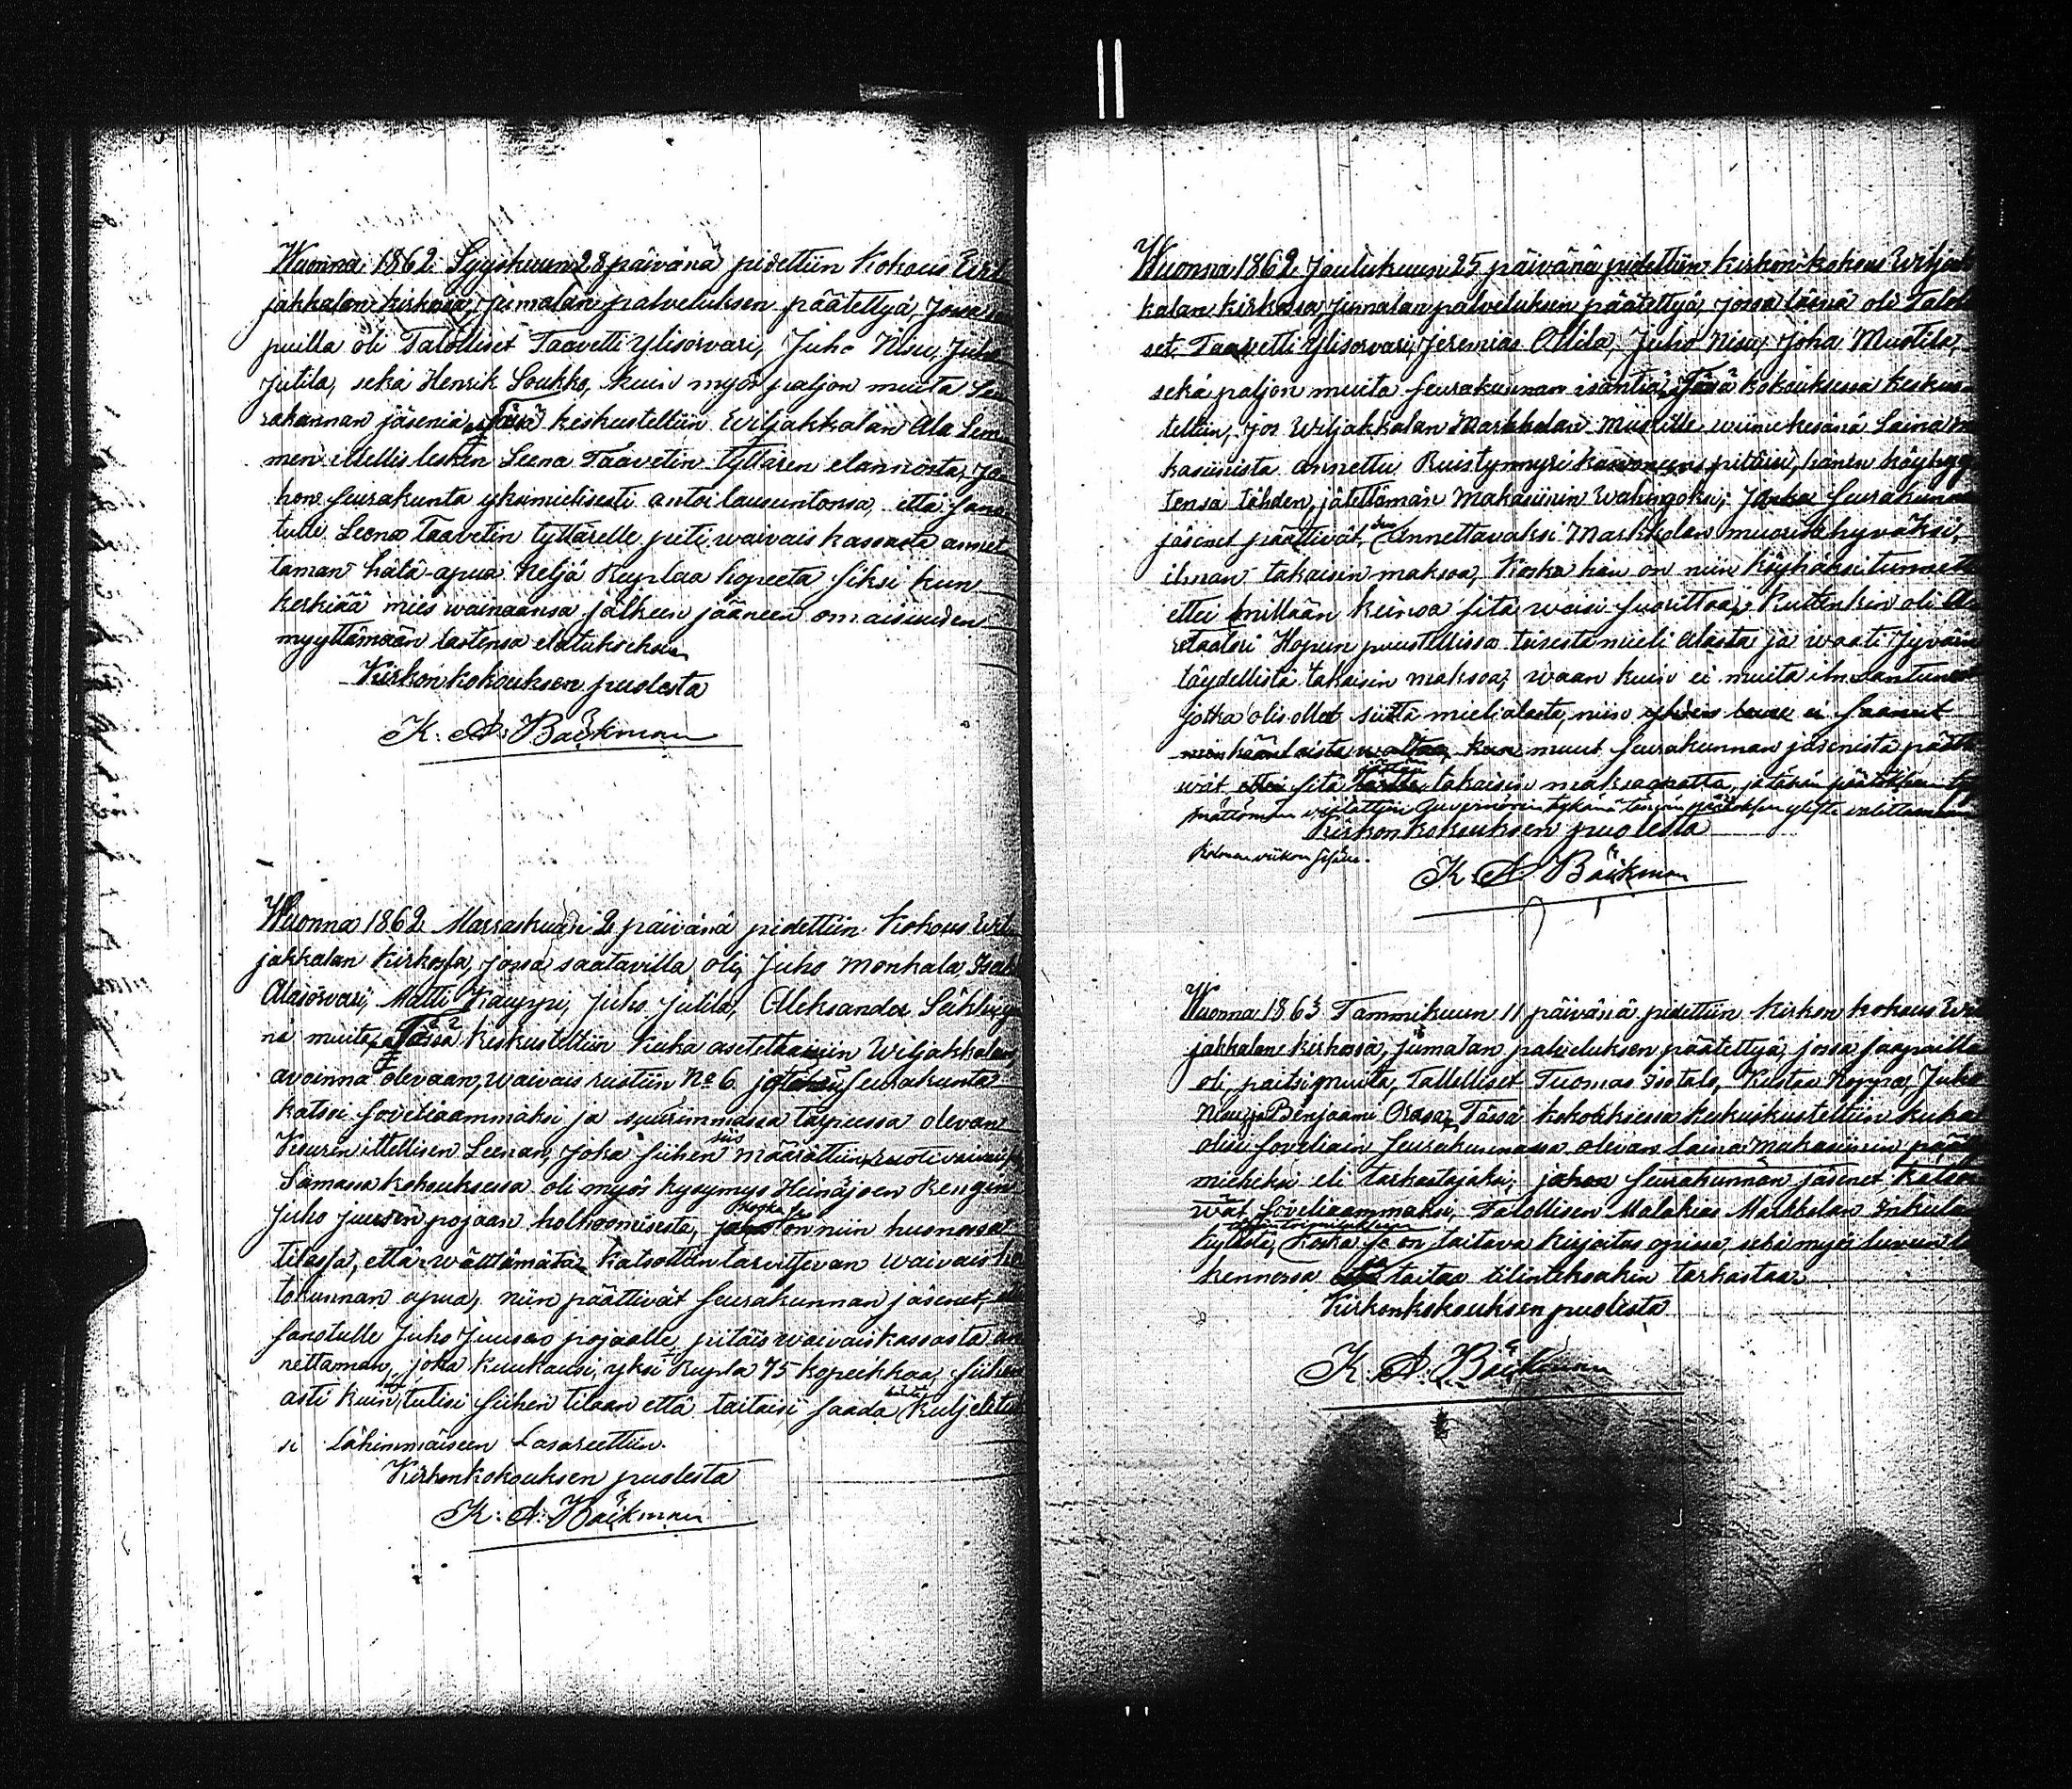 Wuonna 1862 Syyskuun 28 päivänä pidettiin Kokous Wil
jakkalan kirkosa, jumalan palveluksen päätettyä, Jossa
puilla oli Talolliset Taavetti Ylisorvari, Juho Nisu, Juho
Jutila, sekä Henrik Soukko, kuin myös paljon muita Seu
rakunnan jäseniä, Täsä keskusteltiin Wiljakkalan Ala
men ittellis lesken Leena Taavetin tyttären elannosta, Jo
hon seurakunta yksimielisesti antoi lausuntonsa, että sano
tulle Leena Taavetin tyttärelle piti waivais kassasta annet
taman hätä-apua Neljä Ruplaa hopeeta siksi kuin
kerkiää mies wainaansa jälkeen jääneen omaisuuden
myyttämään lastensa elatukseksi
Kirkonkokouksen puolesta
K. A. Bäckman
Wuonna 1862 Marraskuun 2 päivänä pidettiin Kokous Wil
jakkalan Kirkossa, jossa saatavilla oli Juho Monkala,
Alasorvari, Matti Kauppi, Juho Jutila, Aleksander
nä muita, Täsä Keskusteltiin kuka asetettaisiin Wiljakkalan
avoinna olevaan, waivais ruotiin No 6 seurakunta
katsoi soveliaammaksi ja suurimmassa tarpeessa olevan
Keuren ittellisen Leenan, joka siihen siis määrättiin
Samassa kokouksessa oli myös kysymys Heinäjoen Rengin
Juho Juusen pojaan holhoomisesta, koska on niin huonossa
tilassa, että wälttämätä katsottiin tarvittevan waivais ho
tokunnan apua, niin päättivät seurakunnan jäsenet,
sanotulle Juho Juusen pojaalle, pitäis waivaiskassasta an
nettaman, joka kuukausi, yksi Rupla 75 kopeekkaa, siihen
asti kuin tulisi siihen tilaan että taitaisi saada kuljetetu
si Lähimmäiseen Lasareettiin.
Kirkonkokouksen puolesta
K. A. Bäckman
Wuonna 1862 Joulukuun 25 päivänä pidettiin Kirkon-kokous Wiljak
kalan kirkossa, Jumalan palveluksen päätettyä, jossa läsnä oli Talol
set, Taavetti Ylisorvari, Jeremias Ollila, Juho Nisu, Joha Mustila,
sekä paljon muita seurakunnan isäntiä, Täsä kokouksessa keskus
teltiin, jos Wiljakkalan Markkulan Muorille wiime kesänä Laina ma
kasiinista annettu Ruistynnyri kasvoineen pitäisi, hänen köyhyy
tensä tähden, jätettämän Makasiinin wahingoksi; seurakunnan
jäsenet päättivät sen Annettavaksi Markkolan muorin hyväksi,
ilman takaisin maksoa, Koska hän on niin köyhäksi tunnettu
ettei millään keinoa sitä woisi suorittaa, Kuitenkin oli
Hopun puustellissa toisesta mieli alasta ja waati Jyväin
täydellistä takaisin maksoa, waan kuin ei muita
jotka olis ollet siittä mieli alasta, niin ei saanut
minkäänlaista waltaa, kun muut seurakunnan jäsenistä päätti
wät sitä takaisin maksamatta, ja tähän päätökseen
Kirkonkokouksen puolesta
Kolmen viikon sisäm.
K. A. Bäckman
Wuonna 1863 Tammikuun 11 päivänä pidettiin Kirkon kokous Wil
jakkalan Kirkossa, jumalan palveluksen päätettyä, jossa saapuilla
oli, paitsi muita, Tallolliset Tuomas Isotalo, Kustaa Koppa, Juho
Nisu ja Benjaami Orasa, Tässä kokouksessa keskuskusteltiin kuka
olisi soveliain seurakunnassa olevan Laina Makasiinin pää
mieheksi eli tarkastajaksi, johon seurakunnan jäsenet katso
wät soveliaammaksi, Talollisen Malakias Markkolan
kylästä, Koska ja on taitava kirjoitus opissa, sekä myös luvun
kennossa taitaa tilinteksokin tarkastaa.
Kirkonkokouksen puolesta
K. A. Bäckman